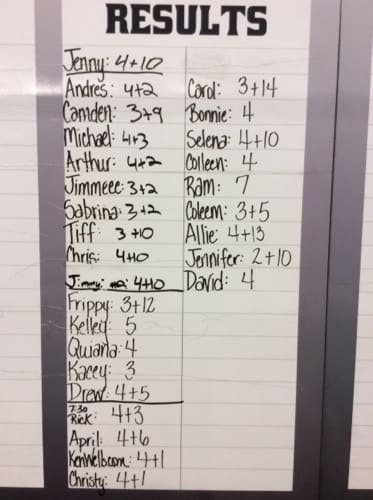 RESULTS
Jenny: 4+10
Andres: 4+2
Camden: 3+9
Michael: 4+3
Arthur: 4+2
Jimmeee: 3+2
Sabrina: 3+2
Tiff: 3+10
Chris: 4+10
Jimmy: 4+10
Frippy: 3+12
Kelley: 5
Quiana: 4
Kacey: 3
Drew: 4+5
7:30
Rick: 4+3
April: 4+6
Kenwelboom: 4+1
Christy: 4+1
Carol: 3+14
Bonnie: 4
Selena: 4+10
Colleen: 4
Ram: 7
Coleem: 3+5
Allie: 4+13
Jennifer: 2+10
David: 4